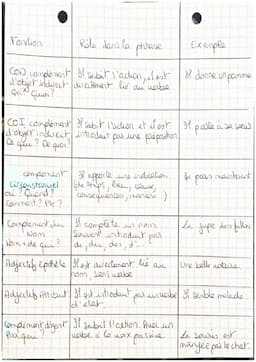 Fonction
Rôle dans la phrase
Exemple
COD complément
d'objet indirect
Qui? Quoi?
Il subit l'action, il est
directement lié au verbe
Il donne un pomme
COI complément
d'objet indirect
De qui? De quoi?
Il subit l'action et il est
introduit par une préposition
Il parle à sa sœur
complement
circonstanciel
où? Quand?
Comment? Pk?
Il apporte une indication
(de temps, lieu, cause,
conséquences, manière)
Je pars maintenant
Complement du
Nom
Il complète un nom
Souvent introduit par
de, du, des, d'
La jupe des filles
Adjectif Epithète
Il est directement lié au
nom, sans verbe
Une belle voiture
Adjectif Attribut
Il est introduit par un verbe
d'état
Il semble malade
Complement d'agent
Par qui
Il subit l'action. Avec un
verbe à la voix passive
La souris est
mangée par le chat.